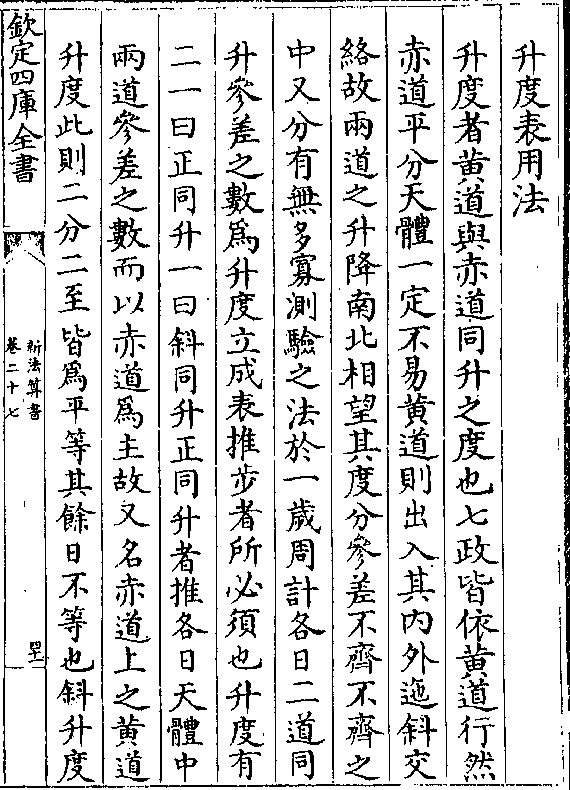 升度表用法
升度者黄道與赤道同升之度也七政皆依黄道行然
赤道平分天體一定不易黄道則出入其内外迤斜交
絡故兩道之升降南北相望其度分參差不齊不齊之
中又分有無多寡測驗之法於一歲周計各日二道同
升參差之數爲升度立成表推步者所必須也升度有
二一曰正同升一曰斜同升正同升者推各日天體中
兩道參差之數而以赤道爲主故又名赤道上之黄道
升度此則二分二至皆爲平等其餘日不等也斜升度
欽定四庫全書
新法算書
卷二十七